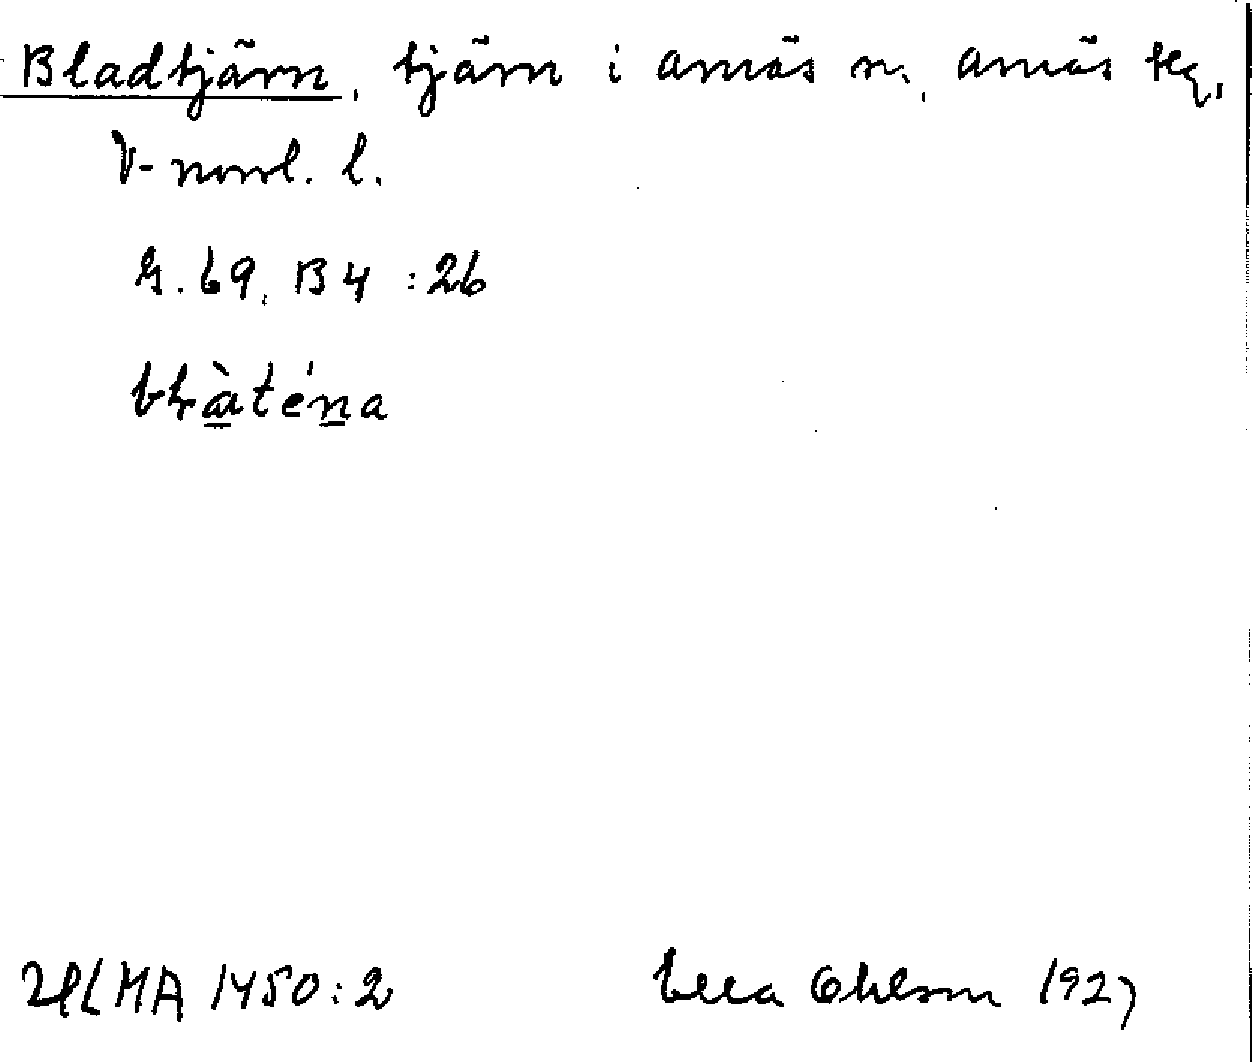 Bladtjärn, tjärn i Arnäs n., Arnäs skg,
V-norrl. l.
G. 69, B 4 :26
ULMA 1450:2
Ella Ohlson 1927